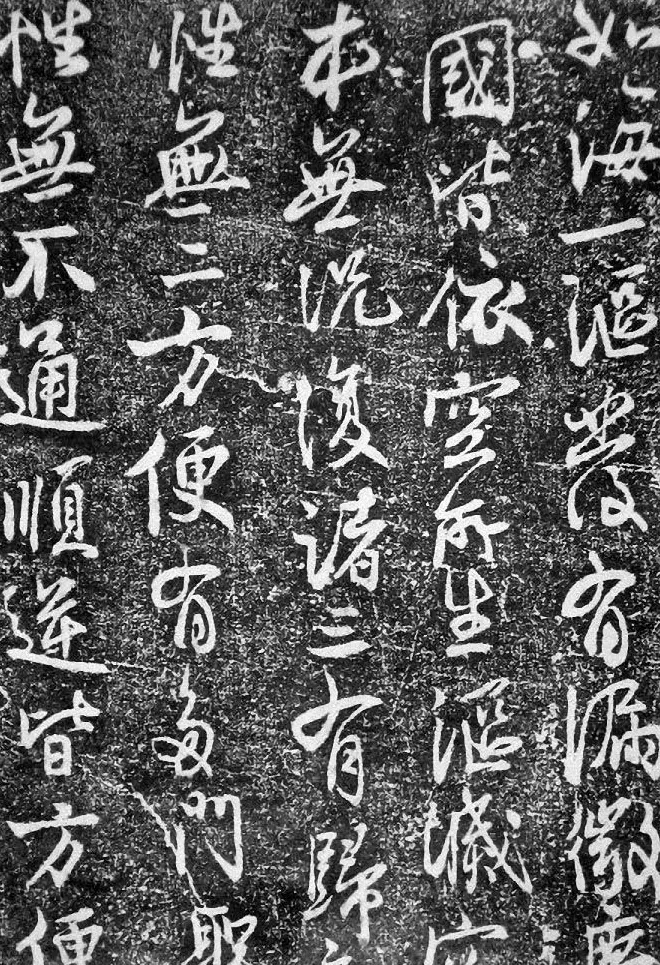 如海一漚發有漏微塵
國皆依空所生漚滅空
本無況復諸三有歸
性無二方便有多門聖
性無不通順逆皆方便